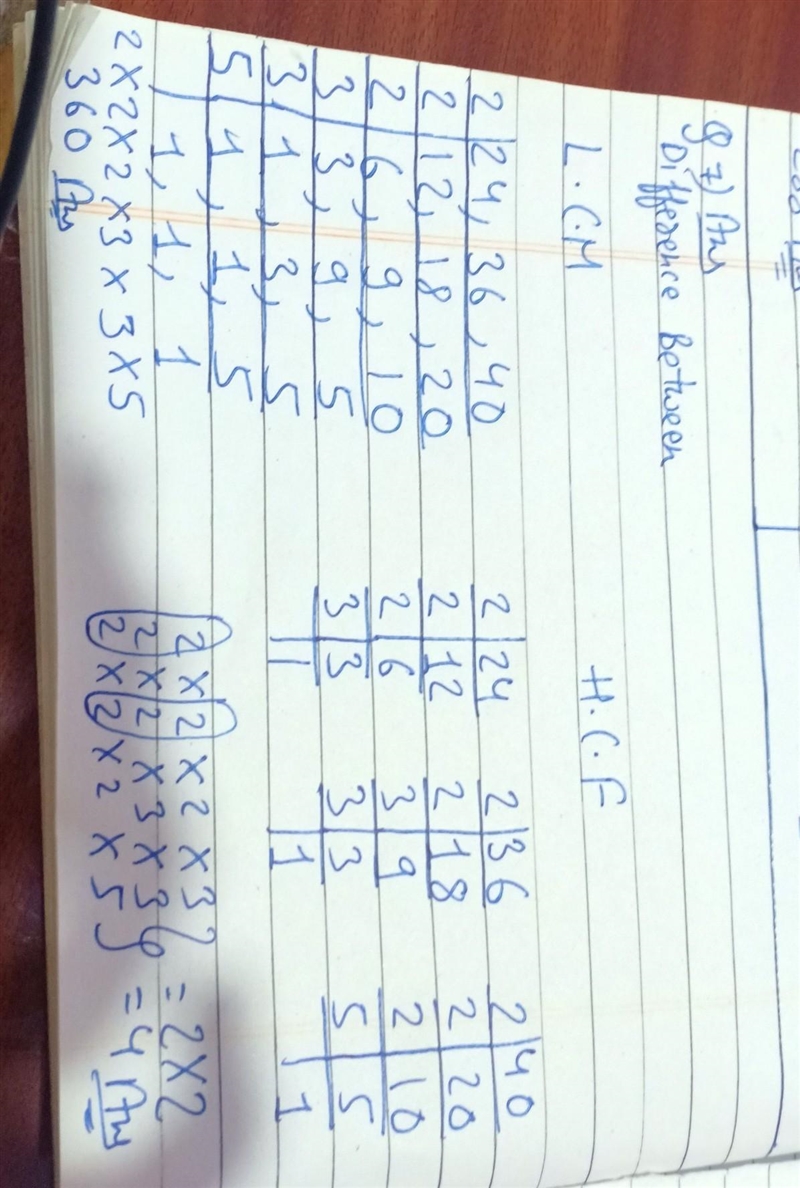 Q 7) Ans
Difference Between
L.C.M
2 | 24, 36, 40
2 | 12, 18, 20
2 | 6, 9, 10
3 | 3, 9, 5
3 | 1, 3, 5
5 | 1, 1, 5
1, 1, 1
2 x 2 x 2 x 3 x 3 x 5
360 Ans
H.C.F
2 | 24
2 | 12
2 | 6
3 | 3
1
2 | 36
2 | 18
3 | 9
3 | 3
1
2 | 40
2 | 20
2 | 10
5 | 5
1
2 x 2 x 2 x 3
2 x 2 x 3 x 3
2 x 2 x 2 x 5
= 2 x 2
= 4 Ans